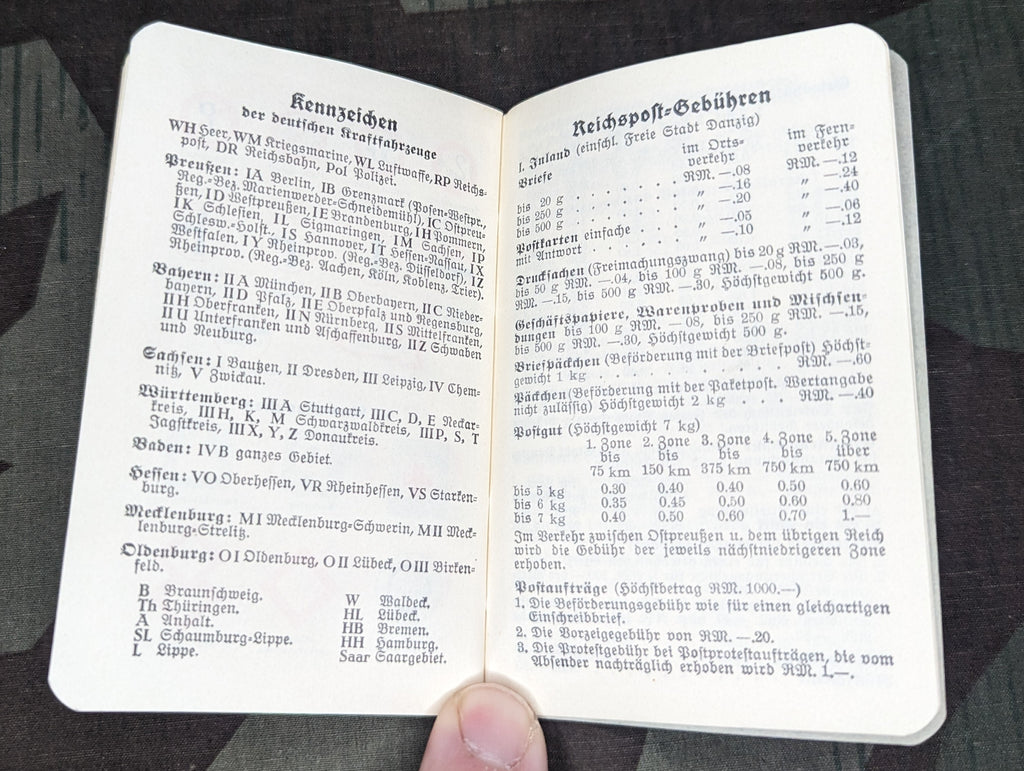 Kennzeichen
der deutschen Kraftfahrzeuge
WH Heer, WM Kriegsmarine, WL Luftwaffe, RP Reichs-
post, DR Reichsbahn, Pol Polizei.
Preußen: IA Berlin, IB Grenzmark (Posen-Westpr.,
Reg.-Bez. Marienwerder-Schneidemühl), IC Ostpreu-
ßen, ID Westpreußen, IE Brandenburg, IH Pommern,
IK Schlesien, IL Sigmaringen, IM Sachsen, IP
Schlesw.-Holst., IS Hannover, IT Hessen-Nassau, IX
Westfalen, IY Rheinprov. (Reg.-Bez. Düsseldorf), IZ
Rheinprov. (Reg.-Bez. Aachen, Köln, Koblenz, Trier).
Bayern: IIA München, IIB Oberbayern, IIC Nieder-
bayern, IID Pfalz, IIE Oberpfalz und Regensburg,
IIH Oberfranken, IIN Nürnberg, IIS Mittelfranken,
IIU Unterfranken und Aschaffenburg, IIZ Schwaben
und Neuburg.
Sachsen: I Bautzen, II Dresden, III Leipzig, IV Chem-
nitz, V Zwickau.
Württemberg: IIIA Stuttgart, IIIC, D, E Neckar-
kreis, IIIH, K, M Schwarzwaldkreis, IIIP, S, T
Jagstkreis, IIIX, Y, Z Donaukreis.
Baden: IVB ganzes Gebiet.
Hessen: VO Oberhessen, VR Rheinhessen, VS Starken-
burg.
Mecklenburg: MI Mecklenburg-Schwerin, MII Meck-
lenburg-Strelitz.
Oldenburg: OI Oldenburg, OII Lübeck, OIII Birken-
feld.
B Braunschweig. W Waldeck.
Th Thüringen. HL Lübeck.
A Anhalt. HB Bremen.
SL Schaumburg-Lippe. HH Hamburg.
L Lippe. Saar Saargebiet.
Reichspost-Gebühren
1. Inland (einschl. Freie Stadt Danzig)
im Orts- im Fern-
Briefe verkehr verkehr
bis 20 g . . . . . . RM. —.08 RM. —.12
bis 250 g . . . . . . " —.16 " —.24
bis 500 g . . . . . . " —.20 " —.40
Postkarten einfache . . . " —.05 " —.06
mit Antwort . . . . . " —.10 " —.12
Drucksachen (Freimachungszwang) bis 20 g RM. —.03,
bis 50 g RM. —.04, bis 100 g RM. —.08, bis 250 g
RM. —.15, bis 500 g RM. —.30, Höchstgewicht 500 g.
Geschäftspapiere, Warenproben und Mischsen-
dungen bis 100 g RM. —08, bis 250 g RM. —.15,
bis 500 g RM. —.30, Höchstgewicht 500 g.
Briefpäckchen (Beförderung mit der Briefpost) Höchst-
gewicht 1 kg . . . . . . . . . . RM. —.60
Päckchen (Beförderung mit der Paketpost. Wertangabe
nicht zulässig) Höchstgewicht 2 kg . . . RM. —.40
Postgut (Höchstgewicht 7 kg)
1. Zone 2. Zone 3. Zone 4. Zone 5. Zone
bis bis bis bis über
75 km 150 km 375 km 750 km 750 km
bis 5 kg 0.30 0.40 0.40 0.50 0.60
bis 6 kg 0.35 0.45 0.50 0.60 0.80
bis 7 kg 0.40 0.50 0.60 0.70 1.—
Im Verkehr zwischen Ostpreußen u. dem übrigen Reich
wird die Gebühr der jeweils nächstniedrigeren Zone
erhoben.
Postaufträge (Höchstbetrag RM. 1000.—)
1. Die Beförderungsgebühr wie für einen gleichartigen
Einschreibbrief.
2. Die Vorzeigegebühr von RM. —.20.
3. Die Protestgebühr bei Postprotestaufträgen, die vom
Absender nachträglich erhoben wird RM. 1.—.